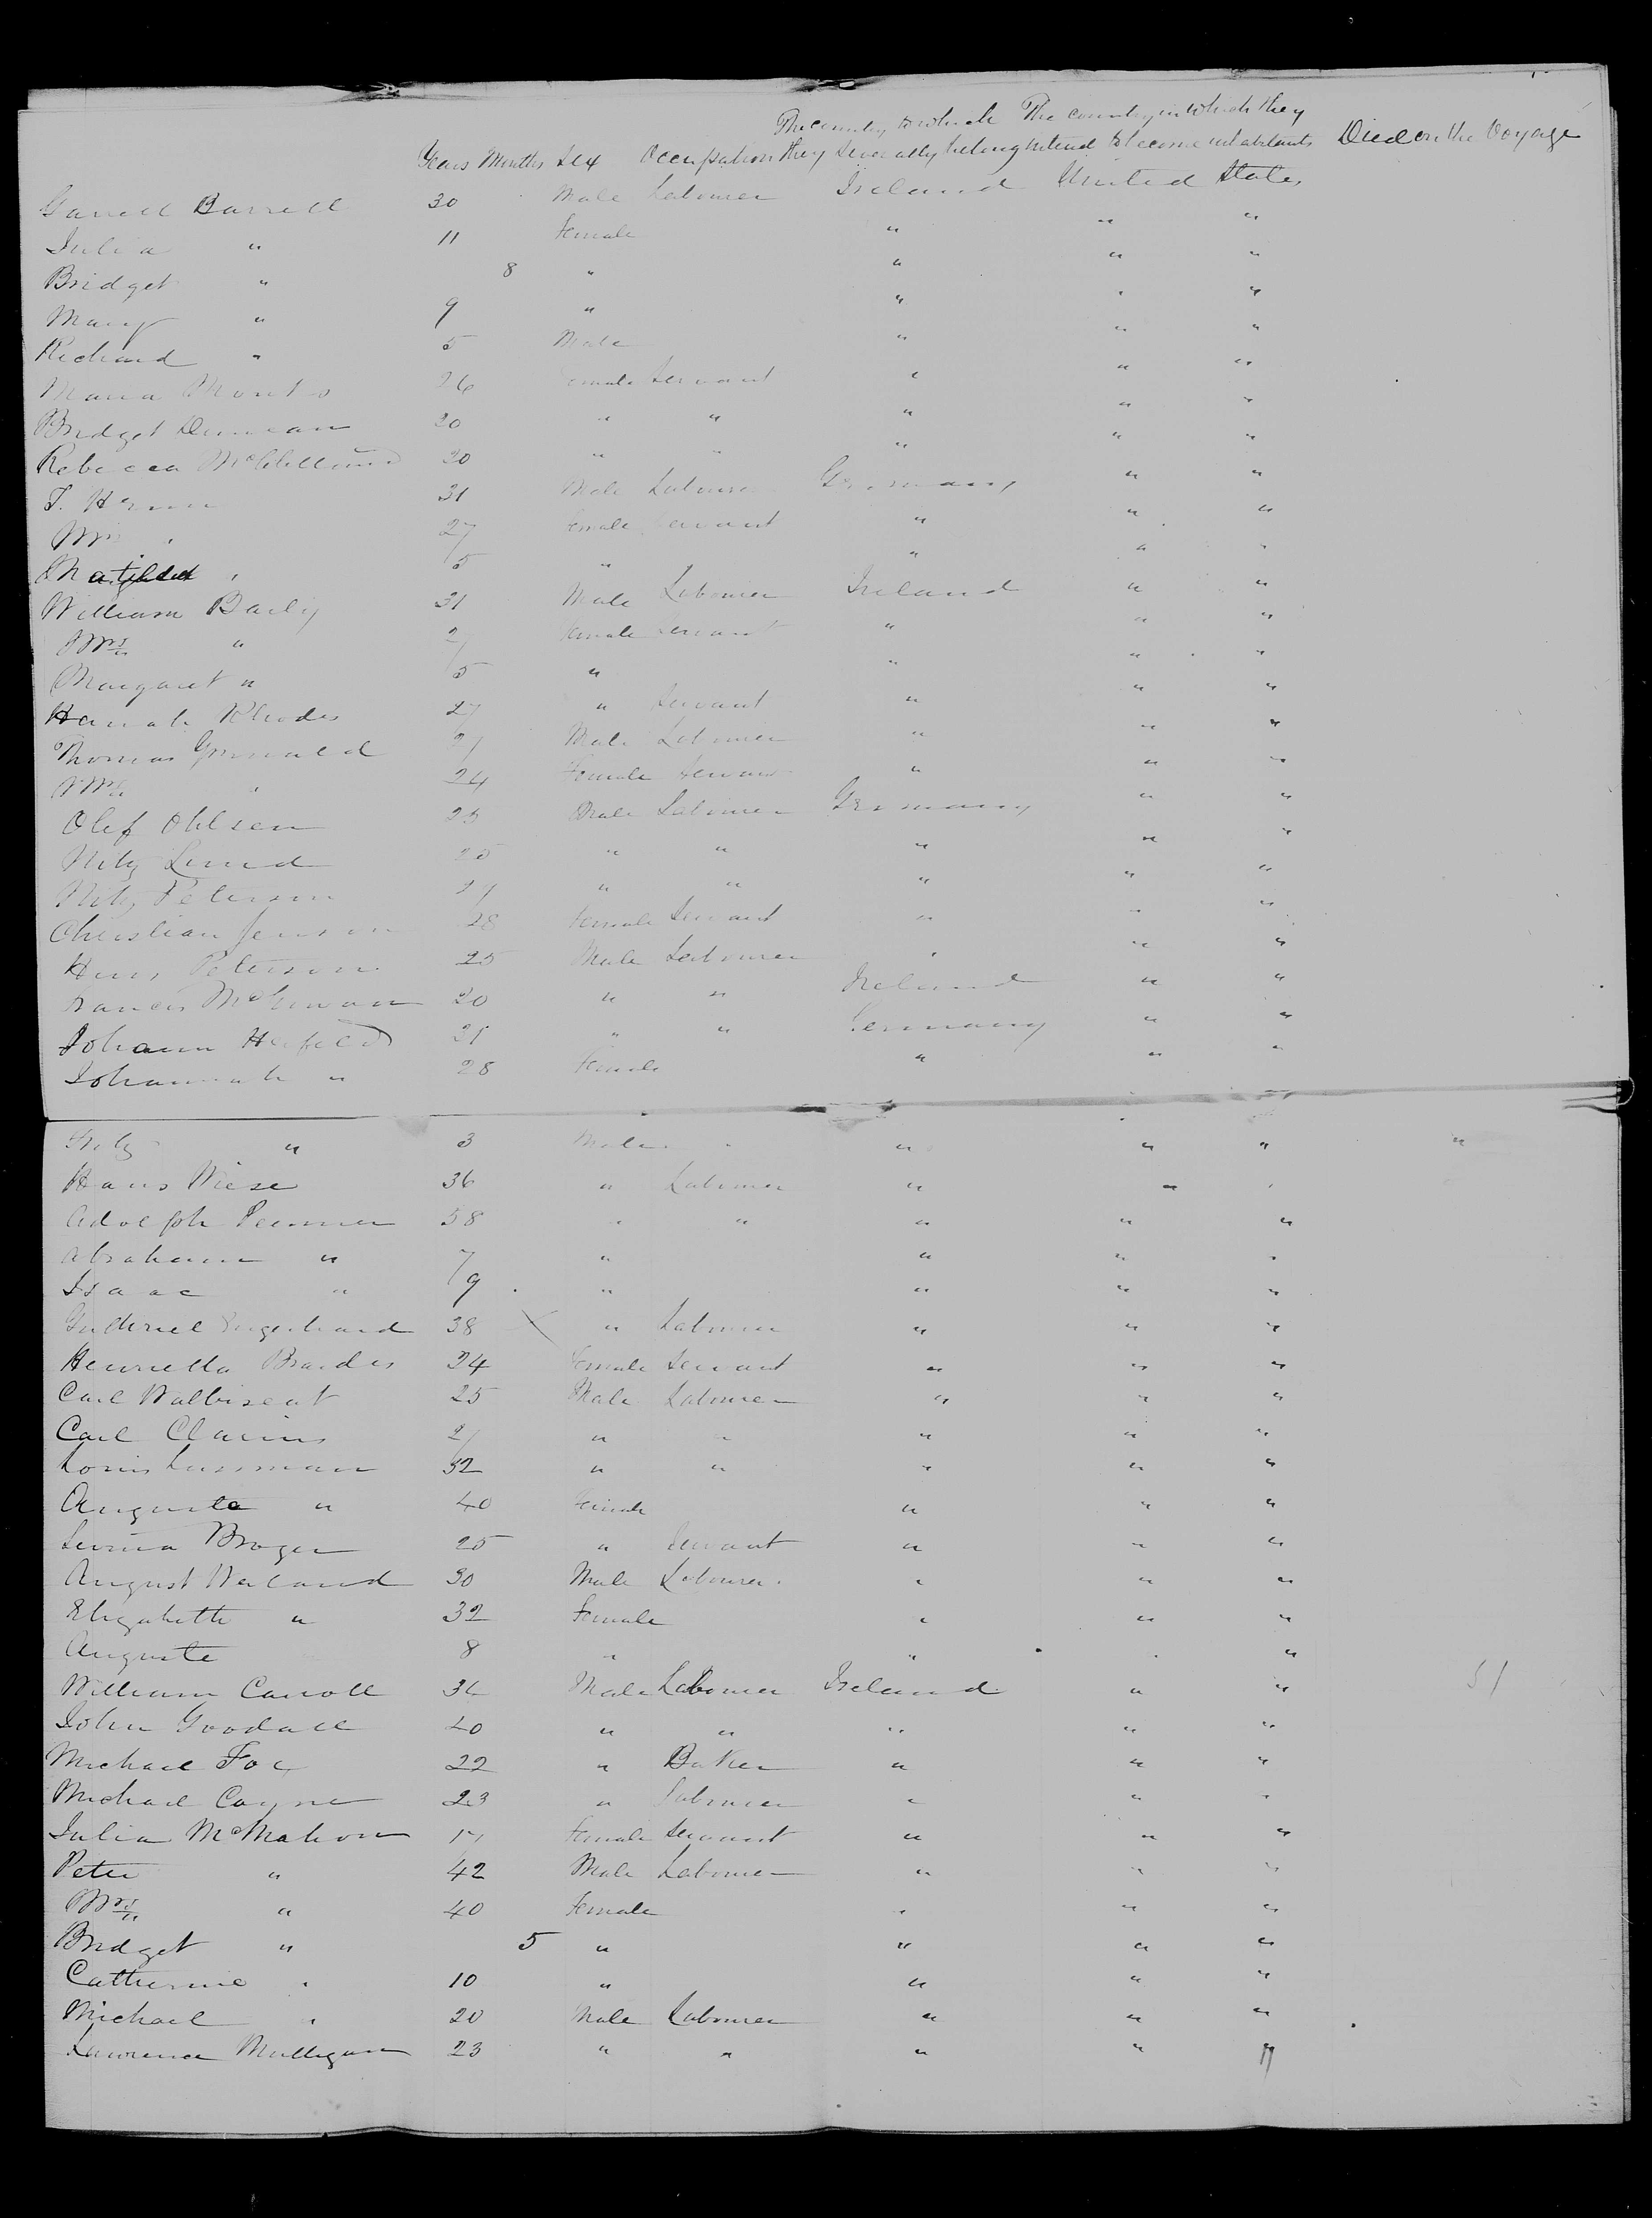 The country to which The country in which they
Years Months Sex Occupation they severally belong intend to become inhabitants Died on the Voyage
Barrell 30 Male Labourer Ireland United States
Julia " 11 Female " " "
Bridget " 8 " " " "
Mary " 9 " " " "
Richard " 5 Male " " "
Maria 26 Female Servant " " "
Bridget Duncan 20 " " " " "
Rebecca 20 " " " " "
T. 31 Male Labourer Germany " "
27 Female Servant " " "
Matilda " 5 " " " "
William Baily 31 Male Labourer Ireland " "
Mrs " 27 Female Servant " " "
Margaret " 5 " " " "
Hannah Rhodes 27 " Servant " " "
Thomas 27 Male Labourer " " "
" 24 Female Servant " " "
Olef Ohlsen 25 Male Labourer Germany " "
Lund 25 " " " " "
Peterson 27 " " " " "
Christian Jenson 28 Female Servant " " "
Hans Peterson 25 Male Labourer " " "
Francis 20 " " Ireland " "
Johann 31 " " Germany " "
Johannah " 28 Female " " "
" 3 Male " " " " "
Hans Wiese 36 " Labourer " " "
Adolph 38 " " " " "
Abraham " 7 " " " "
Isaac " 9 " " " "
38 " Labourer " " "
Henrietta Brandes 24 Female Servant " " "
Carl 25 Male Labourer " " "
Carl 27 " " " " "
Louis 32 " " " " "
Auguste " 40 Female " " "
25 " Servant " " "
August 30 Male Labourer " " "
Elizabeth " 32 Female " " "
Auguste 8 " " " "
William Carroll 36 Male Labourer Ireland " " 51
John Goodall 40 " " " " "
Michael Fox 22 " Baker " " "
Michael Coyne 23 " Labourer " " "
Julia McMahon 17 Female Servant " " "
Peter " 42 Male Labourer " " "
Mrs " 40 Female " " "
Bridget " 5 " " " "
Catherine " 10 " " " "
Michael " 20 Male Labourer " " "
Lawrence Mulligan 23 " " " " "